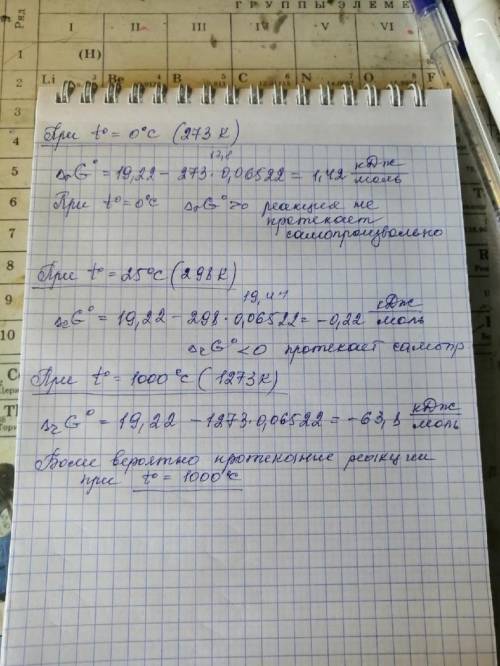 ГРУППЫ ЭЛЕМЕ
Ряд
I II III IV V VI
1 (H)
2 Li Be B C N O F
При t° = 0°C (273 К)
17,8
ΔrG° = 19,22 - 273 · 0,06522 = 1,42 кДж/моль
При t° = 0°C ΔrG° > 0 реакция не
протекает
самопроизвольно
При t° = 25°C (298К)
19,44
ΔrG° = 19,22 - 298 · 0,06522 = -0,22 кДж/моль
ΔrG° < 0 протекает самопр
При t° = 1000°C (1273К)
ΔrG° = 19,22 - 1273 · 0,06522 = -63,8 кДж/моль
Более вероятно протекание реакции
при t° = 1000°C
4
5
6
7
8
9
10